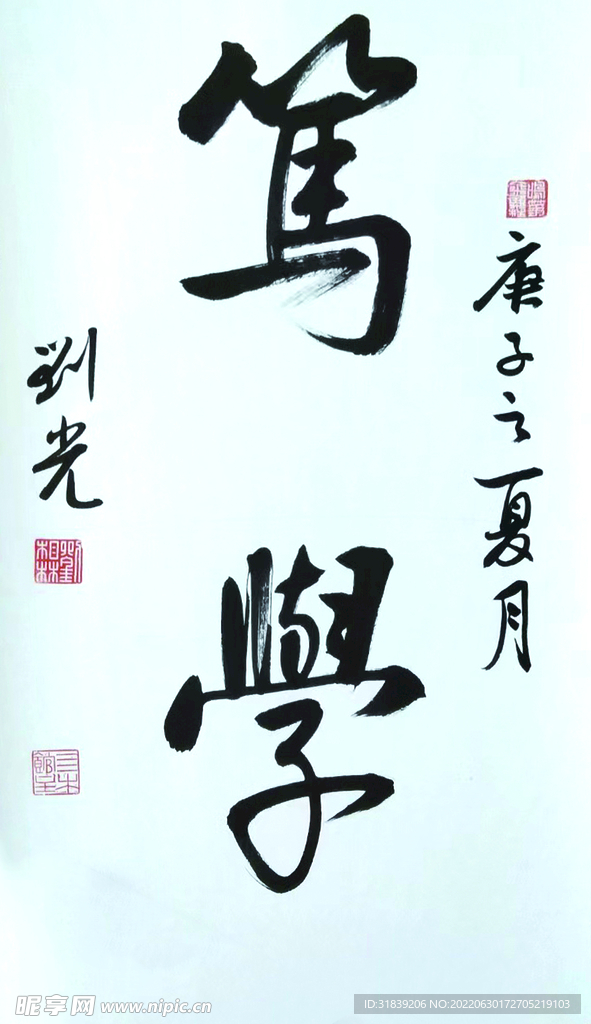 庚子之夏月
篤學
劉光
劉相林
昵享网 www.nipic.cn
ID:31839206 NO:20220630172705219103